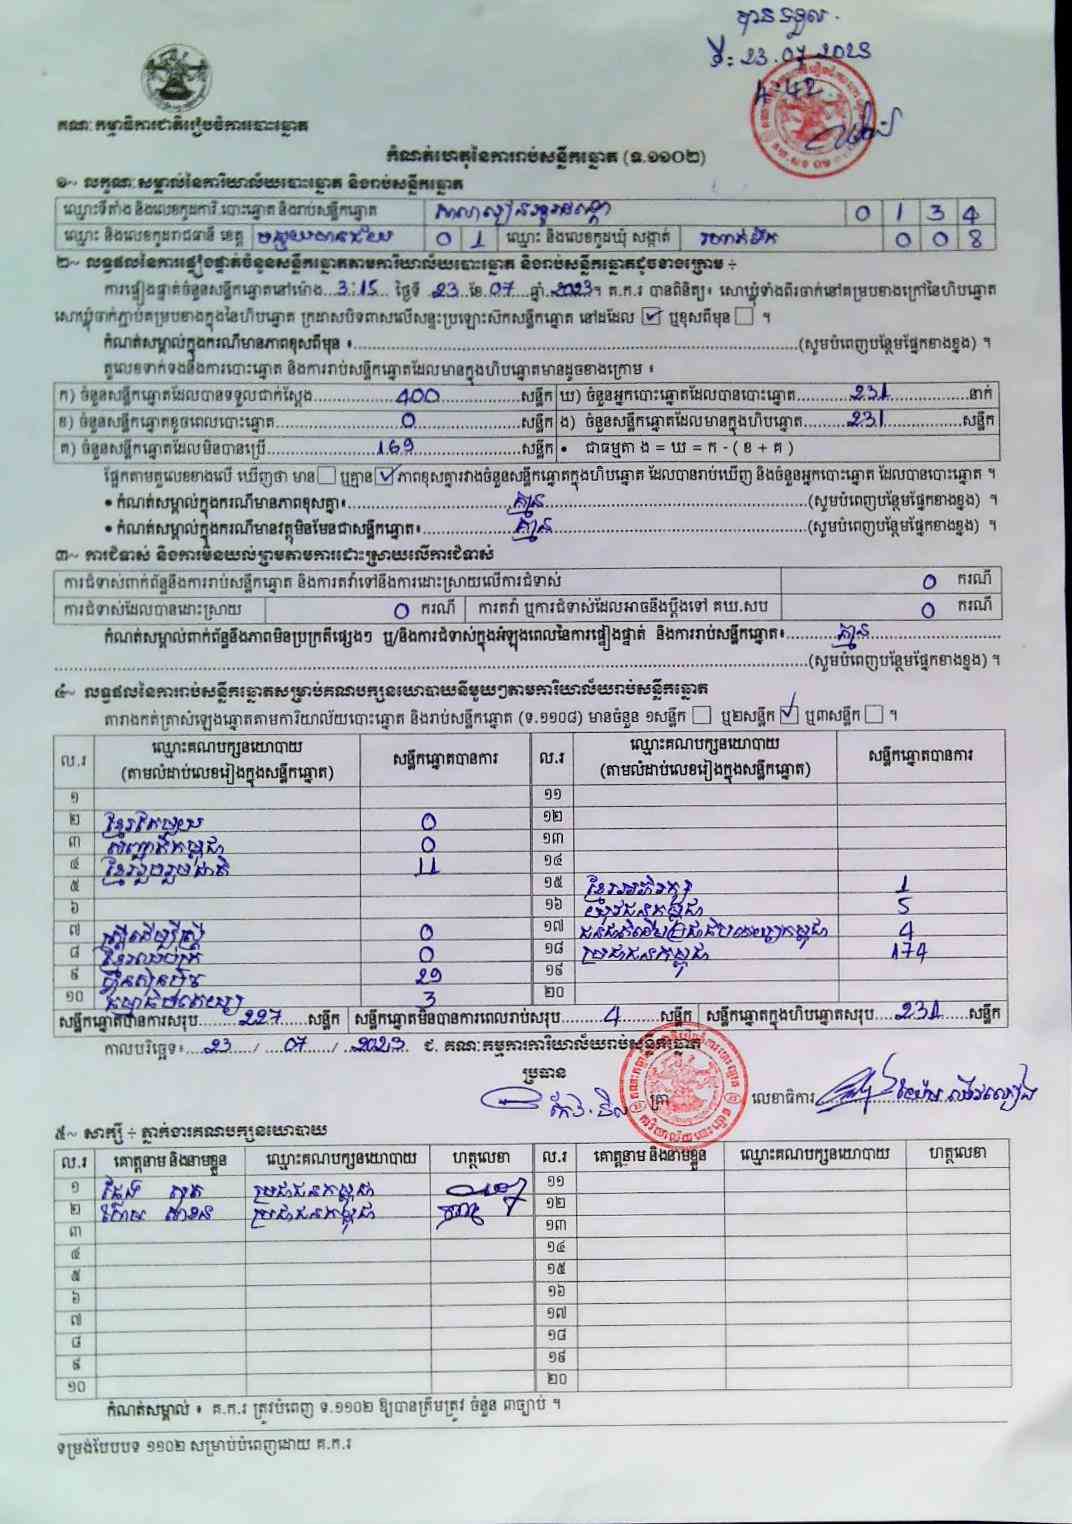 បានទទួល.
ថ្ងៃ: 23.07.2023
4:42
គណៈកម្មាធិការជាតិរៀបចំការបោះឆ្នោត
កំណត់ហេតុនៃការរាប់សន្លឹកឆ្នោត (ទ.១១០២)
១~ លក្ខណៈសម្គាល់នៃការិយាល័យបោះឆ្នោត និងរាប់សន្លឹកឆ្នោត
ឈ្មោះទីតាំង និងលេខកូដការិ.បោះឆ្នោត និងរាប់សន្លឹកឆ្នោត 0 1 3 4
ឈ្មោះ និងលេខកូដរាជធានី ខេត្ត បន្ទាយមានជ័យ 0 1 ឈ្មោះ និងលេខកូដឃុំ សង្កាត់ 0 0 8
២~ លទ្ធផលនៃការផ្ទៀងផ្ទាត់ចំនួនសន្លឹកឆ្នោតតាមការិយាល័យបោះឆ្នោត និងរាប់សន្លឹកឆ្នោតដូចខាងក្រោម ÷
ការផ្ទៀងផ្ទាត់ចំនួនសន្លឹកឆ្នោតនៅម៉ោង...3:15... ថ្ងៃទី ..23..ខែ.07....ឆ្នាំ..2023។ គ.ក.រ បានពិនិត្យ៖ សោឃ្លុំទាំងពីរចាក់នៅគម្របខាងក្រៅនៃហិបឆ្នោត
សោឃ្លុំចាក់ភ្ជាប់គម្របខាងក្នុងនៃហិបឆ្នោត ក្រដាសបិទពាសលើសន្ទះប្រឡោះស៊កសន្លឹកឆ្នោត នៅដដែល ☑ ឬខុសពីមុន ☐ ។
កំណត់សម្គាល់ក្នុងករណីមានភាពខុសពីមុន ៖......(សូមបំពេញបន្ថែមផ្នែកខាងខ្នង) ។
តួលេខទាក់ទងនឹងការបោះឆ្នោត និងការរាប់សន្លឹកឆ្នោតដែលមានក្នុងហិបឆ្នោតមានដូចខាងក្រោម ៖
ក) ចំនួនសន្លឹកឆ្នោតដែលបានទទួលជាក់ស្តែង......400......សន្លឹក ឃ) ចំនួនអ្នកបោះឆ្នោតដែលបានបោះឆ្នោត......231......នាក់
ខ) ចំនួនសន្លឹកឆ្នោតខូចពេលបោះឆ្នោត......0......សន្លឹក ង) ចំនួនសន្លឹកឆ្នោតដែលមានក្នុងហិបឆ្នោត......231......សន្លឹក
គ) ចំនួនសន្លឹកឆ្នោតដែលមិនបានប្រើ......169......សន្លឹក • ជាធម្មតា ង = ឃ = ក - ( ខ + គ )
ផ្អែកតាមតួលេខខាងលើ ឃើញថា មាន ☐ ឬគ្មាន ☑ ភាពខុសគ្នារវាងចំនួនសន្លឹកឆ្នោតក្នុងហិបឆ្នោត ដែលបានរាប់ឃើញ និងចំនួនអ្នកបោះឆ្នោត ដែលបានបោះឆ្នោត ។
• កំណត់សម្គាល់ក្នុងករណីមានភាពខុសគ្នា៖......គ្មាន......(សូមបំពេញបន្ថែមផ្នែកខាងខ្នង) ។
• កំណត់សម្គាល់ក្នុងករណីមានវត្ថុមិនមែនជាសន្លឹកឆ្នោត៖......គ្មាន......(សូមបំពេញបន្ថែមផ្នែកខាងខ្នង) ។
៣~ ការជំទាស់ និងការមិនយល់ព្រមតាមការដោះស្រាយលើការជំទាស់
ការជំទាស់ពាក់ព័ន្ធនឹងការរាប់សន្លឹកឆ្នោត និងការតវ៉ាទៅនឹងការដោះស្រាយលើការជំទាស់ 0 ករណី
ការជំទាស់ដែលបានដោះស្រាយ 0 ករណី ការតវ៉ា ឬការជំទាស់ដែលអាចនឹងប្តឹងទៅ គឃ.សប 0 ករណី
កំណត់សម្គាល់ពាក់ព័ន្ធនឹងភាពមិនប្រក្រតីផ្សេងៗ ឬ/និងការជំទាស់ក្នុងអំឡុងពេលនៃការផ្ទៀងផ្ទាត់ និងការរាប់សន្លឹកឆ្នោត៖......គ្មាន......
......(សូមបំពេញបន្ថែមផ្នែកខាងខ្នង) ។
៤~ លទ្ធផលនៃការរាប់សន្លឹកឆ្នោតសម្រាប់គណបក្សនយោបាយនីមួយៗតាមការិយាល័យរាប់សន្លឹកឆ្នោត
តារាងកត់ត្រាសំឡេងឆ្នោតតាមការិយាល័យបោះឆ្នោត និងរាប់សន្លឹកឆ្នោត (ទ.១១០៨) មានចំនួន ១សន្លឹក ☐ ឬ២សន្លឹក ☑ ឬ៣សន្លឹក ☐ ។
ល.រ ឈ្មោះគណបក្សនយោបាយ (តាមលំដាប់លេខរៀងក្នុងសន្លឹកឆ្នោត) សន្លឹកឆ្នោតបានការ ល.រ ឈ្មោះគណបក្សនយោបាយ (តាមលំដាប់លេខរៀងក្នុងសន្លឹកឆ្នោត) សន្លឹកឆ្នោតបានការ
១ ១១
២ ខ្មែរតែមួយ 0 ១២
៣ សញ្ជាតិកម្ពុជា 0 ១៣
៤ ខ្មែររួបរួមជាតិ 11 ១៤
៥ ១៥ ខ្មែរអភិវឌ្ឍ 1
៦ ១៦ យុវជនកម្ពុជា 5
៧ ស្ត្រីដើម្បីស្ត្រី 0 ១៧ ជនជាតិដើមប្រជាធិបតេយ្យកម្ពុជា 4
៨ ខ្មែរឈប់ក្រ 0 ១៨ ប្រជាជនកម្ពុជា 174
៩ ហ៊្វុនស៊ិនប៉ិច 29 ១៩
១០ ធម្មាធិបតេយ្យ 3 ២០
សន្លឹកឆ្នោតបានការសរុប......227......សន្លឹក សន្លឹកឆ្នោតមិនបានការពេលរាប់សរុប......4......សន្លឹក សន្លឹកឆ្នោតក្នុងហិបឆ្នោតសរុប......231......សន្លឹក
កាលបរិច្ឆេទ៖....23..../....07..../....2023 ជ. គណៈកម្មការការិយាល័យរាប់សន្លឹកឆ្នោត
ប្រធាន
ត្រា លេខាធិការ
៥~ សាក្សី ÷ ភ្នាក់ងារគណបក្សនយោបាយ
ល.រ គោត្តនាម និងនាមខ្លួន ឈ្មោះគណបក្សនយោបាយ ហត្ថលេខា ល.រ គោត្តនាម និងនាមខ្លួន ឈ្មោះគណបក្សនយោបាយ ហត្ថលេខា
១ ប្រជាជនកម្ពុជា ១១
២ ប្រជាជនកម្ពុជា ១២
៣ ១៣
៤ ១៤
៥ ១៥
៦ ១៦
៧ ១៧
៨ ១៨
៩ ១៩
១០ ២០
កំណត់សម្គាល់ ៖ គ.ក.រ ត្រូវបំពេញ ទ.១១០២ ឱ្យបានត្រឹមត្រូវ ចំនួន ៣ច្បាប់ ។
ទម្រង់បែបបទ ១១០២ សម្រាប់បំពេញដោយ គ.ក.រ